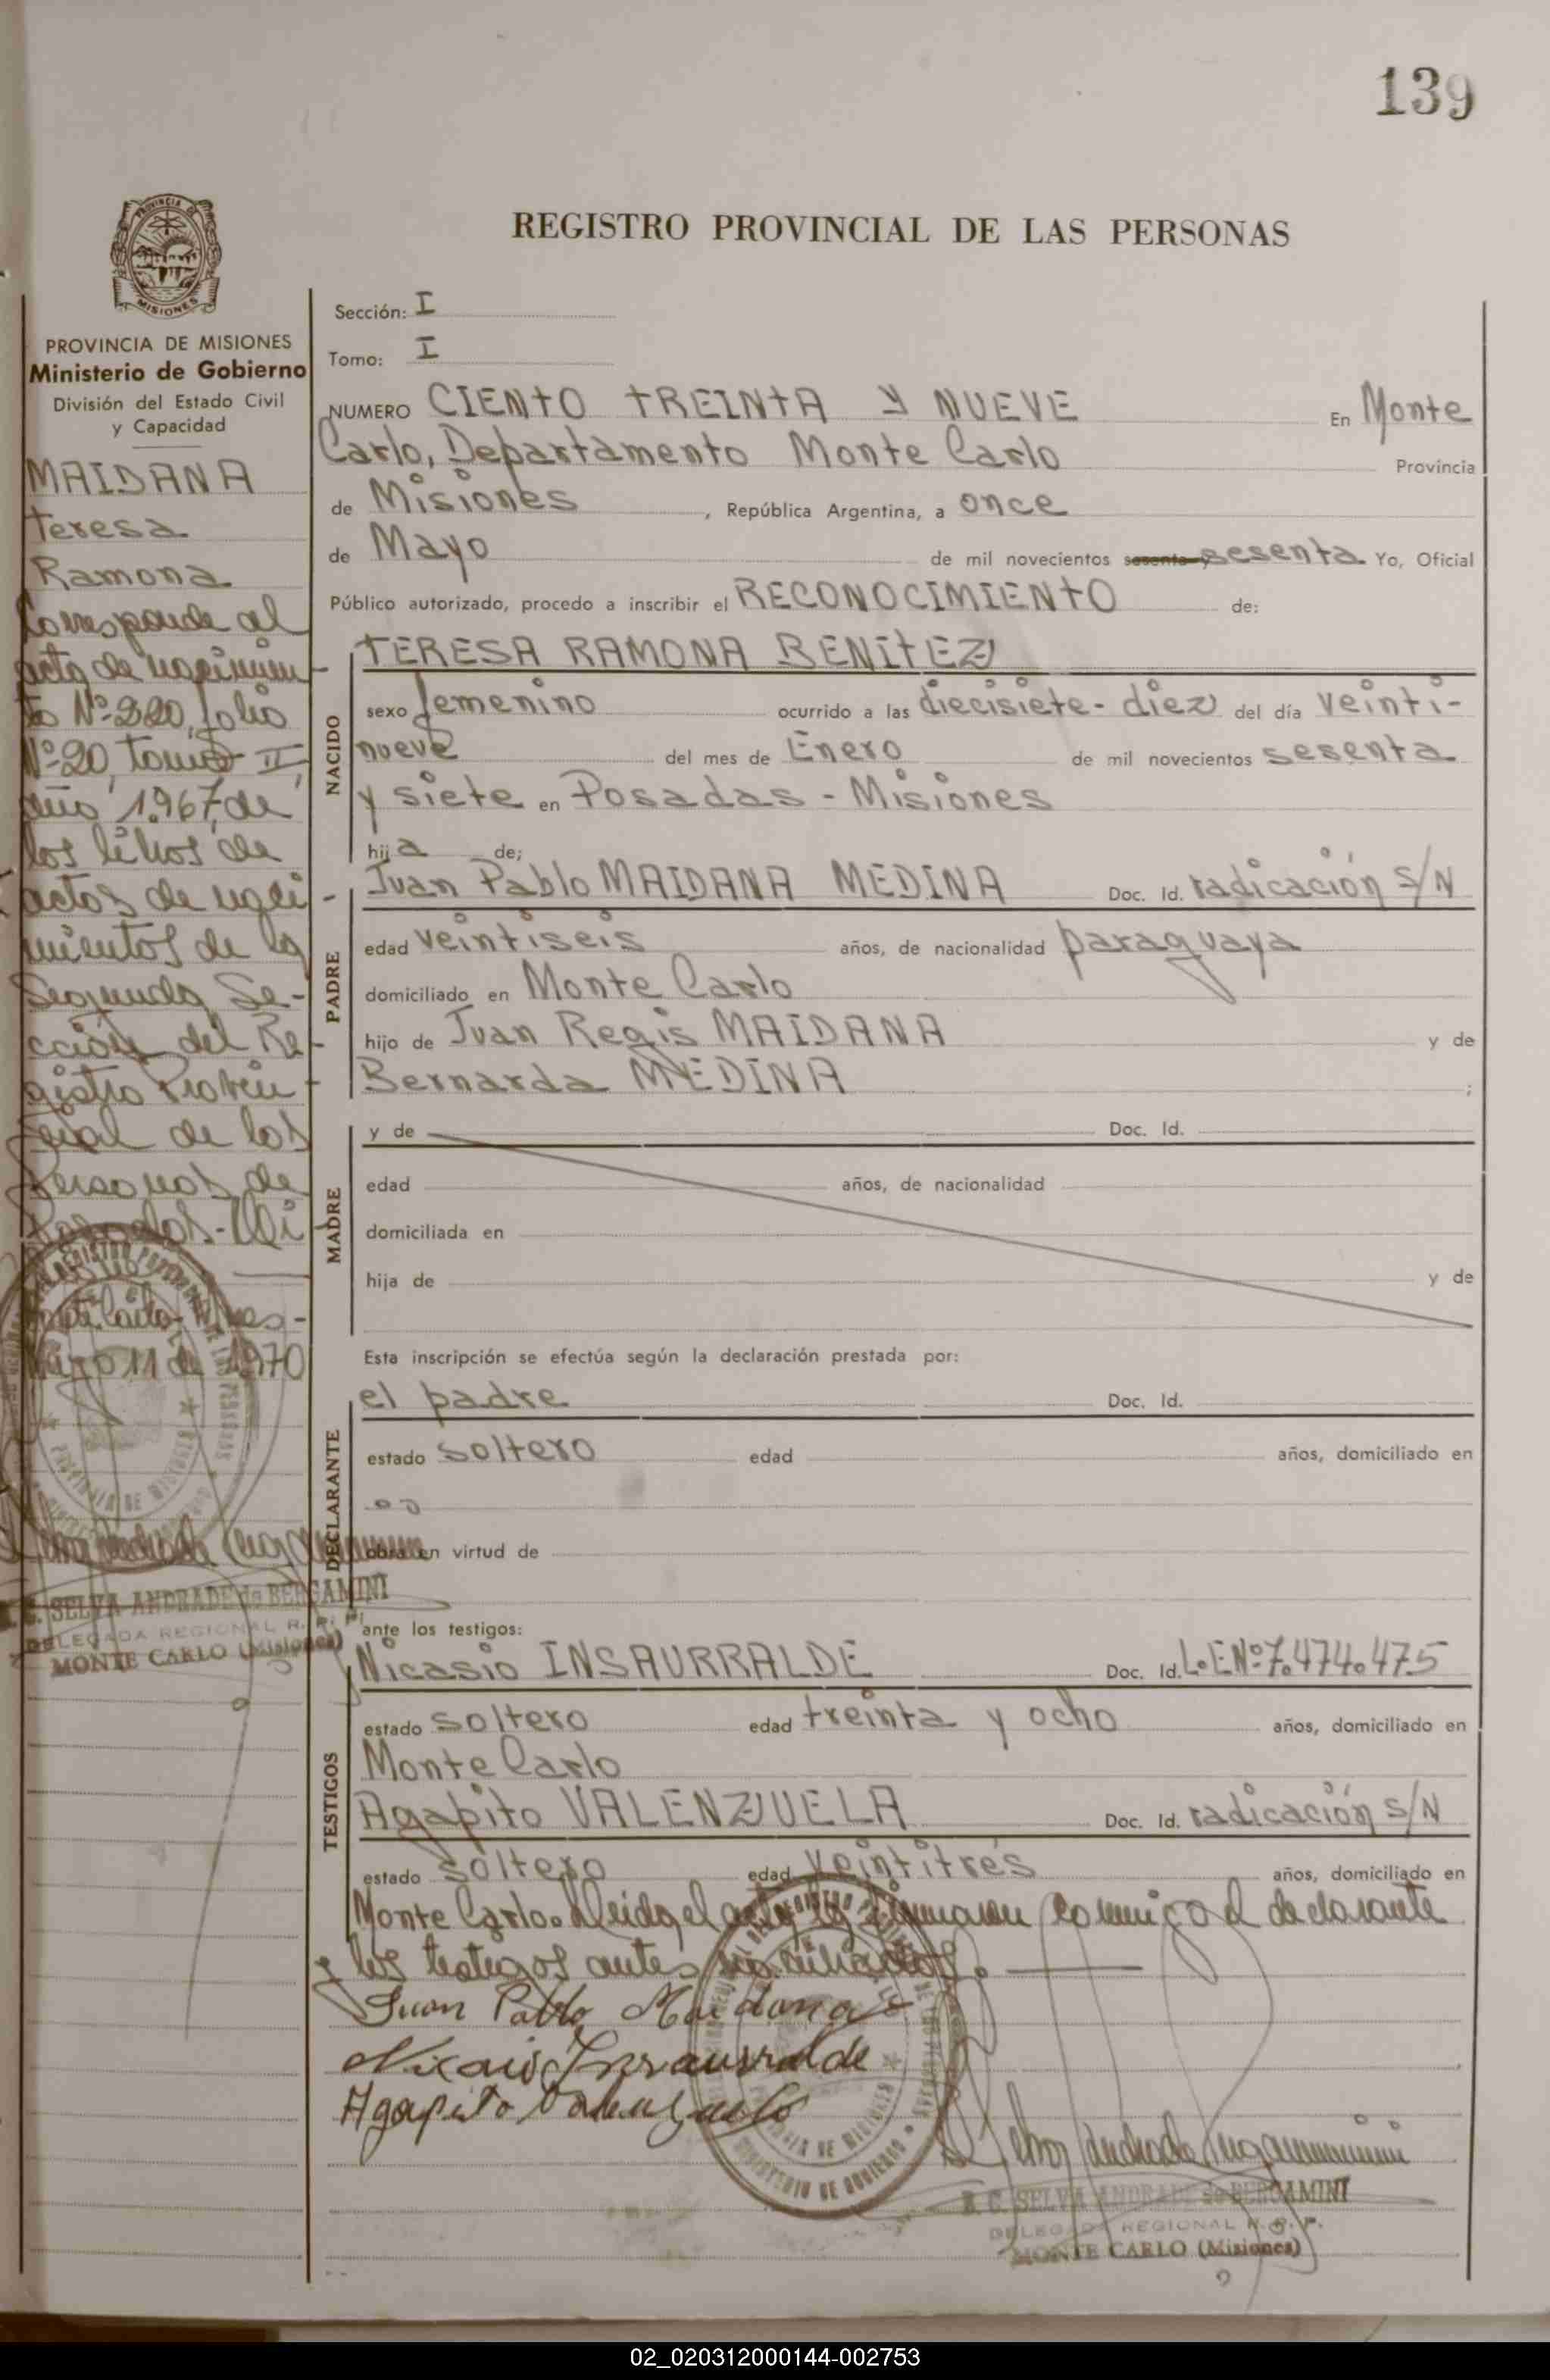 139
REGISTRO PROVINCIAL DE LAS PERSONAS
PROVINCIA
MISIONES
PROVINCIA DE MISIONES
Ministerio de Gobierno
División del Estado Civil
y Capacidad
MAIDANA
Teresa
Ramona
Corresponde al
acta de nacimien
to Nº 220, folio
Nº 20, tomo II,
año 1.967, de
los libros de
actas de naci-
mientos de la
Segunda Se-
cción del Re-
gistro Provin-
cial de las
Personas de
Posadas-Mi
11 de 1970
SELVA ANDRADE de BERGAMINI
DELEGADA REGIONAL R. P. P.
MONTE CARLO (Misiones)
Sección: I
Tomo: I
NUMERO CIENTO TREINTA Y NUEVE En Monte
Carlo, Departamento Monte Carlo Provincia
de Misiones, República Argentina, a once
de Mayo de mil novecientos sesenta Yo, Oficial
Público autorizado, procedo a inscribir el RECONOCIMIENTO de:
NACIDO
TERESA RAMONA BENITEZ
sexo femenino ocurrido a las diecisiete-diez del día veinti-
nueve del mes de Enero de mil novecientos sesenta
y siete en Posadas - Misiones
hija de;
PADRE
Juan Pablo MAIDANA MEDINA Doc. Id. radicación S/N
edad veintiseis años, de nacionalidad paraguaya
domiciliado en Monte Carlo
hijo de Juan Regis MAIDANA y de
Bernarda MEDINA ;
MADRE
y de Doc. Id.
edad años, de nacionalidad
domiciliada en
hija de y de
Esta inscripción se efectúa según la declaración prestada por:
DECLARANTE
el padre Doc. Id.
estado soltero edad años, domiciliado en
obra en virtud de
ante los testigos:
TESTIGOS
Nicasio INSAURRALDE Doc. Id. L.E.Nº7.474.475
estado soltero edad treinta y ocho años, domiciliado en
Monte Carlo
Agapito VALENZUELA Doc. Id. radicación S/N
estado soltero edad veintitrés años, domiciliado en
Monte Carlo. Leida el acta la firmaron conmigo el declarante
y los testigos antes
Juan Pablo Maidana
Nicasio Insaurralde
Agapito Valenzuela
Selva Andrade Bergamini
SELVA ANDRADE de BERGAMINI
DELEGADA REGIONAL R. P. P.
MONTE CARLO (Misiones)
02_020312000144-002753